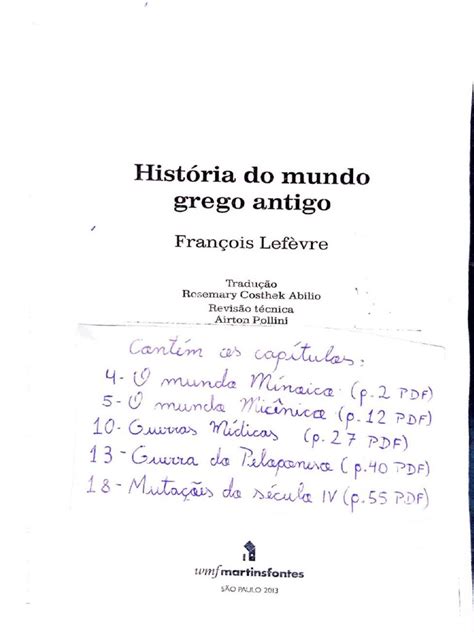 História do mundo
grego antigo
François Lefèvre
Tradução
Rosemary Costhek Abilio
Revisão técnica
Airton Pollini
Contém os capítulos:
4- O mundo Minoico (p.2 PDF)
5- O mundo Micênico (p.12 PDF)
10- Guerras Médicas (p.27 PDF)
13- Guerra do Peloponeso (p.40 PDF)
18- Mutações do século IV (p.55 PDF)
wmfmartinsfontes
SÃO PAULO 2013